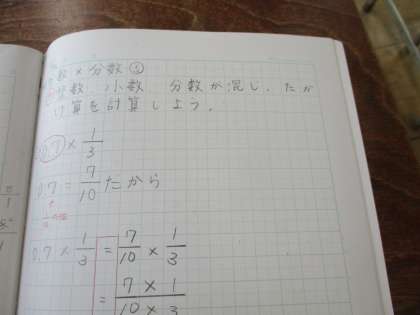 数×分数②
整数 小数 分数が混じったか
け算を計算しよう。
0.7×1/3
0.7=7/10だから
0.7×1/3=7/10×1/3
=7×1/10×3